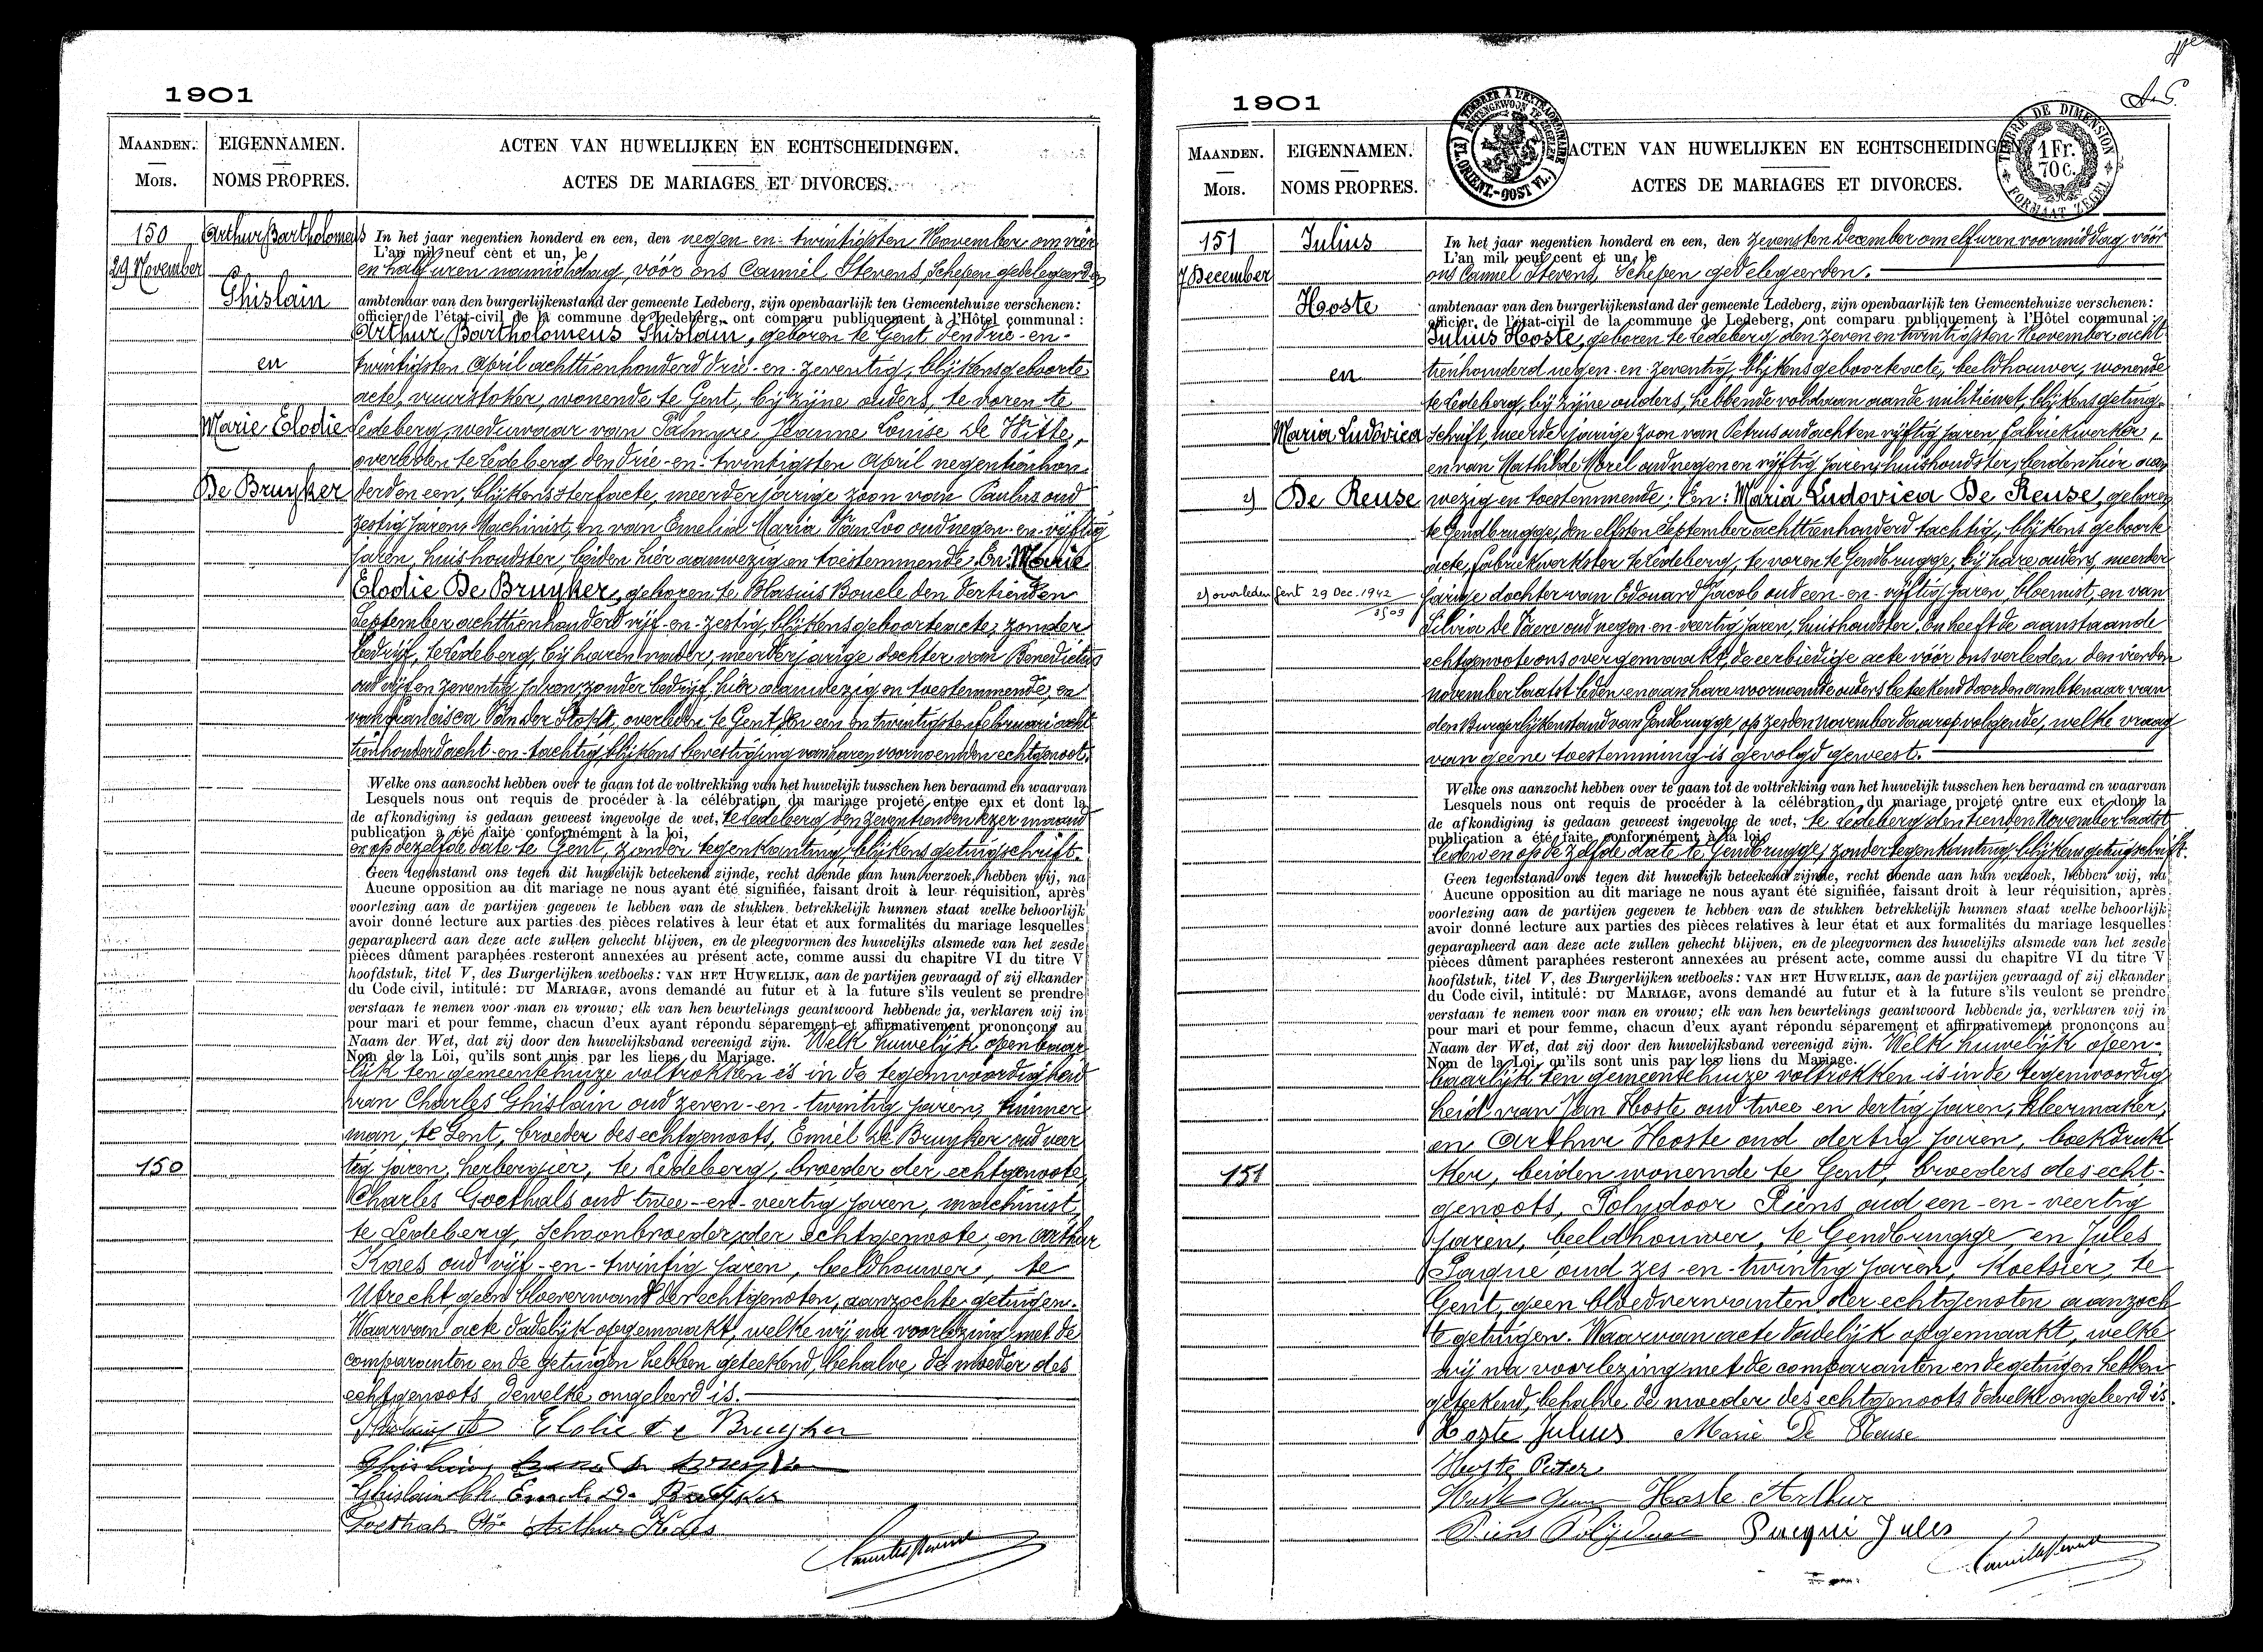 1901
MAANDEN.
Mois.
EIGENNAMEN.
NOMS PROPRES.
ACTEN VAN HUWELIJKEN EN ECHTSCHEIDINGEN.
ACTES DE MARIAGES ET DIVORCES.
150
29 November
Arthur Bartholomeus
Ghislain
en
Marie Elodie
De Bruyker
In het jaar negentien honderd en een, den negen-en-twintigsten November, om vier
L'an mil neuf cent et un, le
en half uren namiddag, vóór ons Camiel Stevens, Schepen gedelegeerden
ambtenaar van den burgerlijkenstand der gemeente Ledeberg, zijn openbaarlijk ten Gemeentehuize verschenen:
officier de l'état-civil de la commune de Ledeberg, ont comparu publiquement à l'Hôtel communal:
Arthur Bartholomeus Ghislain, geboren te Gent den drie-en-
twintigsten April achttienhonderd drie-en-zeventig, blijkens geboorte
acte, vuurstoker, wonende te Gent, bij zijne ouders, te voren te
Ledeberg, weduwaar van Palmyre Jeanne Louise De Witte,
overleden te Ledeberg den drie-en-twintigsten April negentienhon-
derd en een, blijkens sterfacte, meerderjarige zoon van Paulus oud
zestig jaren, Machinist, en van Emelia Maria Van Loo oud negen-en-vijftig
jaren, huishoudster, beiden hier aanwezig en toestemmende; En: Marie
Elodie De Bruyker, geboren te Blasius Boucle den dertienden
September achttienhonderd vijf-en-zestig, blijkens geboorteacte, zonder
bedrijf, te Ledeberg, bij haren vader, meerderjarige dochter van Benedictus
oud vijf en zeventig jaren, zonder bedrijf, hier aanwezig en toestemmende, en
van Francisca Van der Stockt, overleden te Gent, den een en twintigsten Februari acht
tienhonderd acht-en-tachtig, blijkens bevestiging van haren voornoemden echtgenoot.
Welke ons aanzocht hebben over te gaan tot de voltrekking van het huwelijk tusschen hen beraamd en waarvan
Lesquels nous ont requis de procéder à la célébration du mariage projeté entre eux et dont la
de afkondiging is gedaan geweest ingevolge de wet, te Ledeberg den zeventienden dezer maand
publication a été faite conformément à la loi,
en op dezelfde date te Gent, zonder tegenkanting, blijkens getuigschrift.
Geen tegenstand ons tegen dit huwelijk beteekend zijnde, recht doende aan hun verzoek, hebben wij, na
Aucune opposition au dit mariage ne nous ayant été signifiée, faisant droit à leur réquisition, après
voorlezing aan de partijen gegeven te hebben van de stukken betrekkelijk hunnen staat welke behoorlijk
avoir donné lecture aux parties des pièces relatives à leur état et aux formalités du mariage lesquelles
geparapheerd aan deze acte zullen gehecht blijven, en de pleegvormen des huwelijks alsmede van het zesde
pièces dûment paraphées resteront annexées au présent acte, comme aussi du chapitre VI du titre V
hoofdstuk, titel V, des Burgerlijken wetboeks: VAN HET HUWELIJK, aan de partijen gevraagd of zij elkander
du Code civil, intitulé: DU MARIAGE, avons demandé au futur et à la future s'ils veulent se prendre
verstaan te nemen voor man en vrouw; elk van hen beurtelings geantwoord hebbende ja, verklaren wij in
pour mari et pour femme, chacun d'eux ayant répondu séparement et affirmativement prononçons au
Naam der Wet, dat zij door den huwelijksband vereenigd zijn. Welk huwelijk openbaar-
Nom de la Loi, qu'ils sont unis par les liens du Mariage.
lijk ten gemeentehuize voltrokken is in de tegenwoordigheid
van Charles Ghislain oud zeven-en-twintig jaren, timmer
man, te Gent, broeder des echtgenoots, Emiel De Bruyker oud veer
tig jaren, herbergier, te Ledeberg, broeder der echtgenoote,
150
Charles Goethals oud twee-en-veertig jaren, machinist,
te Ledeberg, Schoonbroeder der echtgenoote, en Arthur
Kaes oud vijf-en-twintig jaren, beeldhouwer, te
Utrecht, geen bloeverwant der echtgenoten, aanzochte getuigen.
Waarvan acte dadelijk opgemaakt, welke wij na voorlezing met de
comparanten en de getuigen hebben geteekend, behalve de moeder des
echtgenoots dewelke ongeleerd is.
Elodie De Bruyker
Ghislain
Ghislain Ch. Emile De Bruyker
Goethals Arthur Kaes
1901
A TIMBRER A L'EXTRAORDINAIRE
BUITENGEWOON TE ZEGELEN
(FL. ORIENT.-OOST VL.)
TIMBRE DE DIMENSION
1 Fr.
70 c.
FORMAAT ZEGEL
MAANDEN.
Mois.
EIGENNAMEN.
NOMS PROPRES.
ACTEN VAN HUWELIJKEN EN ECHTSCHEIDING
ACTES DE MARIAGES ET DIVORCES.
151
7 December
Julius
Hoste
en
Maria Ludovica
De Reuse
2)
2) overleden Gent 29 Dec. 1942
In het jaar negentien honderd en een, den zevensten December om elf uren voormiddag vóór
L'an mil neuf cent et un, le
ons Camiel Stevens, Schepen gedelegeerden.
ambtenaar van den burgerlijkenstand der gemeente Ledeberg, zijn openbaarlijk ten Gemeentehuize verschenen:
officier de l'état-civil de la commune de Ledeberg, ont comparu publiquement à l'Hôtel communal:
Julius Hoste, geboren te Ledeberg, den zeven en twintigsten November acht
tienhonderd negen-en-zeventig, blijkens geboorteacte, beeldhouwer, wonende
te Ledeberg, bij zijne ouders, hebbende voldaan aan de militiewet, blijkens getuig-
schrift, meerderjarige zoon van Petrus oud acht en vijftig jaren, fabriekwerker,
en van Mathilde Morel oud negen en vijftig jaren, huishoudster, beiden hier aan
wezig en toestemmende; En: Maria Ludovica De Reuse, geboren
te Gendbrugge, den elfsten September achttienhonderd tachtig, blijkens geboorte
acte, fabriekwerkster te Ledeberg, te voren te Gendbrugge, bij hare ouders, meerder
jarige dochter van Edouard Jacob oud een-en-vijftig jaren, bloemist, en van
Silvia De Paere oud negen-en-veertig jaren, huishoudster. En heeft de aanstaande
echtgenoote ons overgemaakt, de eerbiedige acte vóór ons verleden den vierden
November laatst leden en aan hare voornoemde ouders beteekend door den ambtenaar van
den Burgerlijkenstand van Gendbrugge, op zesden November daaropvolgende, welke vraag
van geene toestemming is gevolgd geweest.
Welke ons aanzocht hebben over te gaan tot de voltrekking van het huwelijk tusschen hen beraamd en waarvan
Lesquels nous ont requis de procéder à la célébration du mariage projeté entre eux et dont la
de afkondiging is gedaan geweest ingevolge de wet, te Ledeberg den tienden November laatst
publication a été faite conformément à la loi,
leden en op de zelfde date te Gendbrugge, zonder tegenkanting, blijkens getuigschrift.
Geen tegenstand ons tegen dit huwelijk beteekend zijnde, recht doende aan hun verzoek, hebben wij, na
Aucune opposition au dit mariage ne nous ayant été signifiée, faisant droit à leur réquisition, après
voorlezing aan de partijen gegeven te hebben van de stukken betrekkelijk hunnen staat welke behoorlijk
avoir donné lecture aux parties des pièces relatives à leur état et aux formalités du mariage lesquelles
geparapheerd aan deze acte zullen gehecht blijven, en de pleegvormen des huwelijks alsmede van het zesde
pièces dûment paraphées resteront annexées au présent acte, comme aussi du chapitre VI du titre V
hoofdstuk, titel V, des Burgerlijken wetboeks: VAN HET HUWELIJK, aan de partijen gevraagd of zij elkander
du Code civil, intitulé: DU MARIAGE, avons demandé au futur et à la future s'ils veulent se prendre
verstaan te nemen voor man en vrouw; elk van hen beurtelings geantwoord hebbende ja, verklaren wij in
pour mari et pour femme, chacun d'eux ayant répondu séparement et affirmativement prononçons au
Naam der Wet, dat zij door den huwelijksband vereenigd zijn. Welk huwelijk open-
Nom de la Loi, qu'ils sont unis par les liens du Mariage.
baarlijk ten gemeentehuize voltrokken is in de tegenwoordig
heid van Jan Hoste oud twee en dertig jaren, kleermaker,
en Arthur Hoste oud dertig jaren, boekdruk
151
ker, beiden wonende te Gent, broeders des echt-
genoots, Polydoor Piens oud een-en-veertig
jaren, beeldhouwer, te Gendbrugge, en Jules
Paque oud zes-en-twintig jaren, Koetsier, te
Gent, geen bloedverwanten der echtgenoten aanzoch
te getuigen. Waarvan acte dadelijk opgemaakt, welke
wij na voorlezing met de comparanten en de getuigen hebben
geteekend, behalve de moeder des echtgenoots dewelke ongeleerd is.
Hoste Julius Marie De Reuse
Hoste Peter
Hoste Jean Hoste Arthur
Piens Polydoor Pacqui Jules